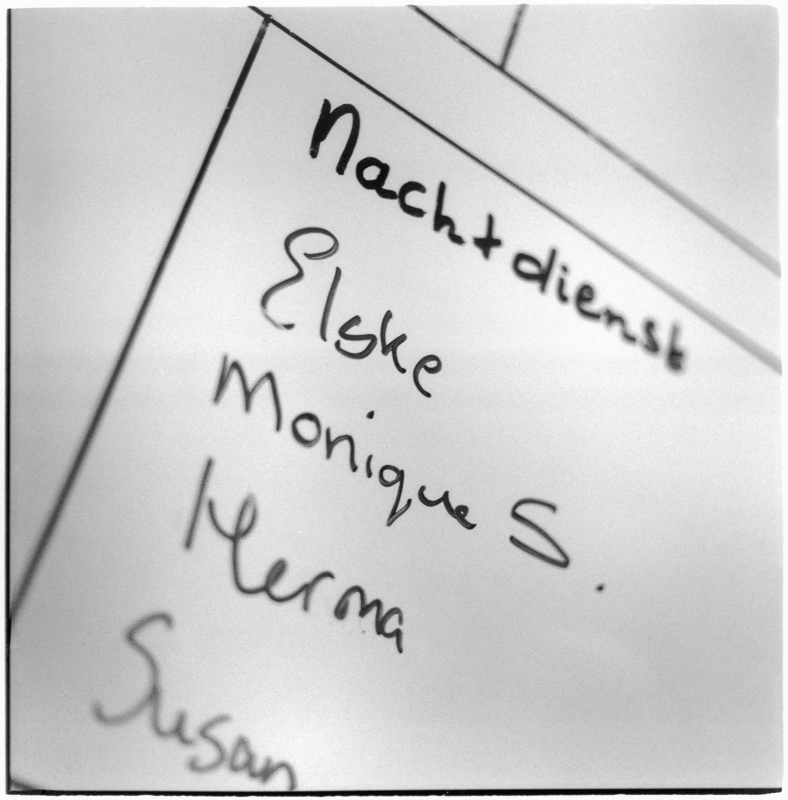 Nachtdienst
Elske
Monique S.
Herma
Susan